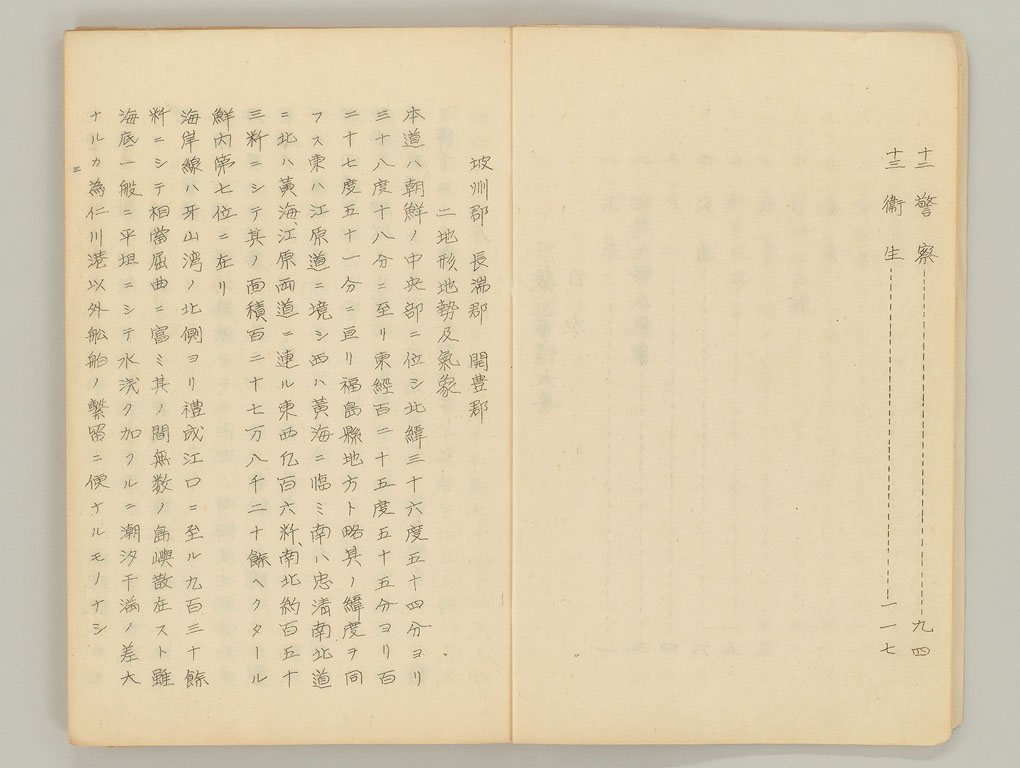 十二 警察 九四
十三 衞生 一一七
坡州郡 長湍郡 開豊郡
二 地形地勢及氣象
本道ハ朝鮮ノ中央部ニ位シ北緯三十六度五十四分ヨリ
三十八度十八分ニ至リ東經百二十五度五十五分ヨリ百
二十七度五十一分ニ亘リ福島縣地方ト略其ノ緯度ヲ同
フス東ハ江原道ニ境シ西ハ黄海ニ臨ミ南ハ忠清南北道
ニ北ハ黄海、江原両道ニ連ル東西亿百六粁、南北約百五十
三粁ニシテ其ノ面積百二十七万八千二十餘ヘクタール
鮮内第七位ニ在リ
海岸線ハ牙山湾ノ北側ヨリ禮成江口ニ至ル九百三十餘
粁ニシテ相當屈曲ニ富ミ其ノ間無数ノ島嶼散在スト雖
海底一般ニ平坦ニシテ水浅ク加フルニ潮汐干満ノ差大
ナルカ為仁川港以外舩舶ノ繋留ニ便ナルモノナシ
二